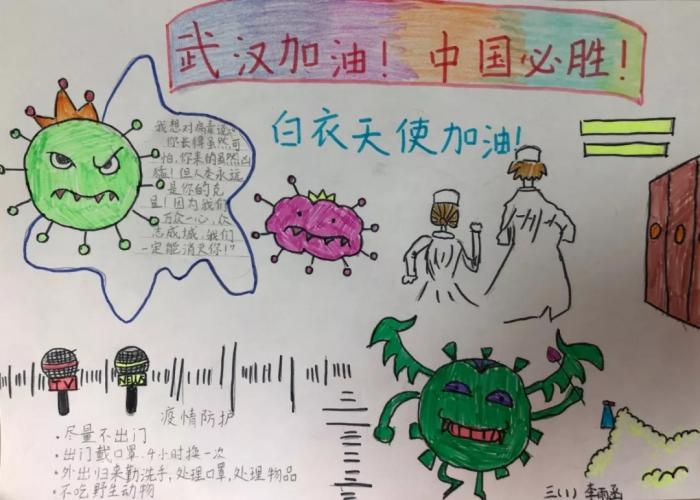 武汉加油！中国必胜！
白衣天使加油！
我想对病毒说：“
你长得虽然可
怕，你来的虽然凶
猛！但人类永远
是你的克
星！因为我们
万众一心，众
志成城，我们
一定能消灭你！”
TV
NEWS
疫情防护
·尽量不出门
·出门戴口罩，4小时换一次
·外出归来勤洗手，处理口罩，处理物品
·不吃野生动物
三（1）李雨函